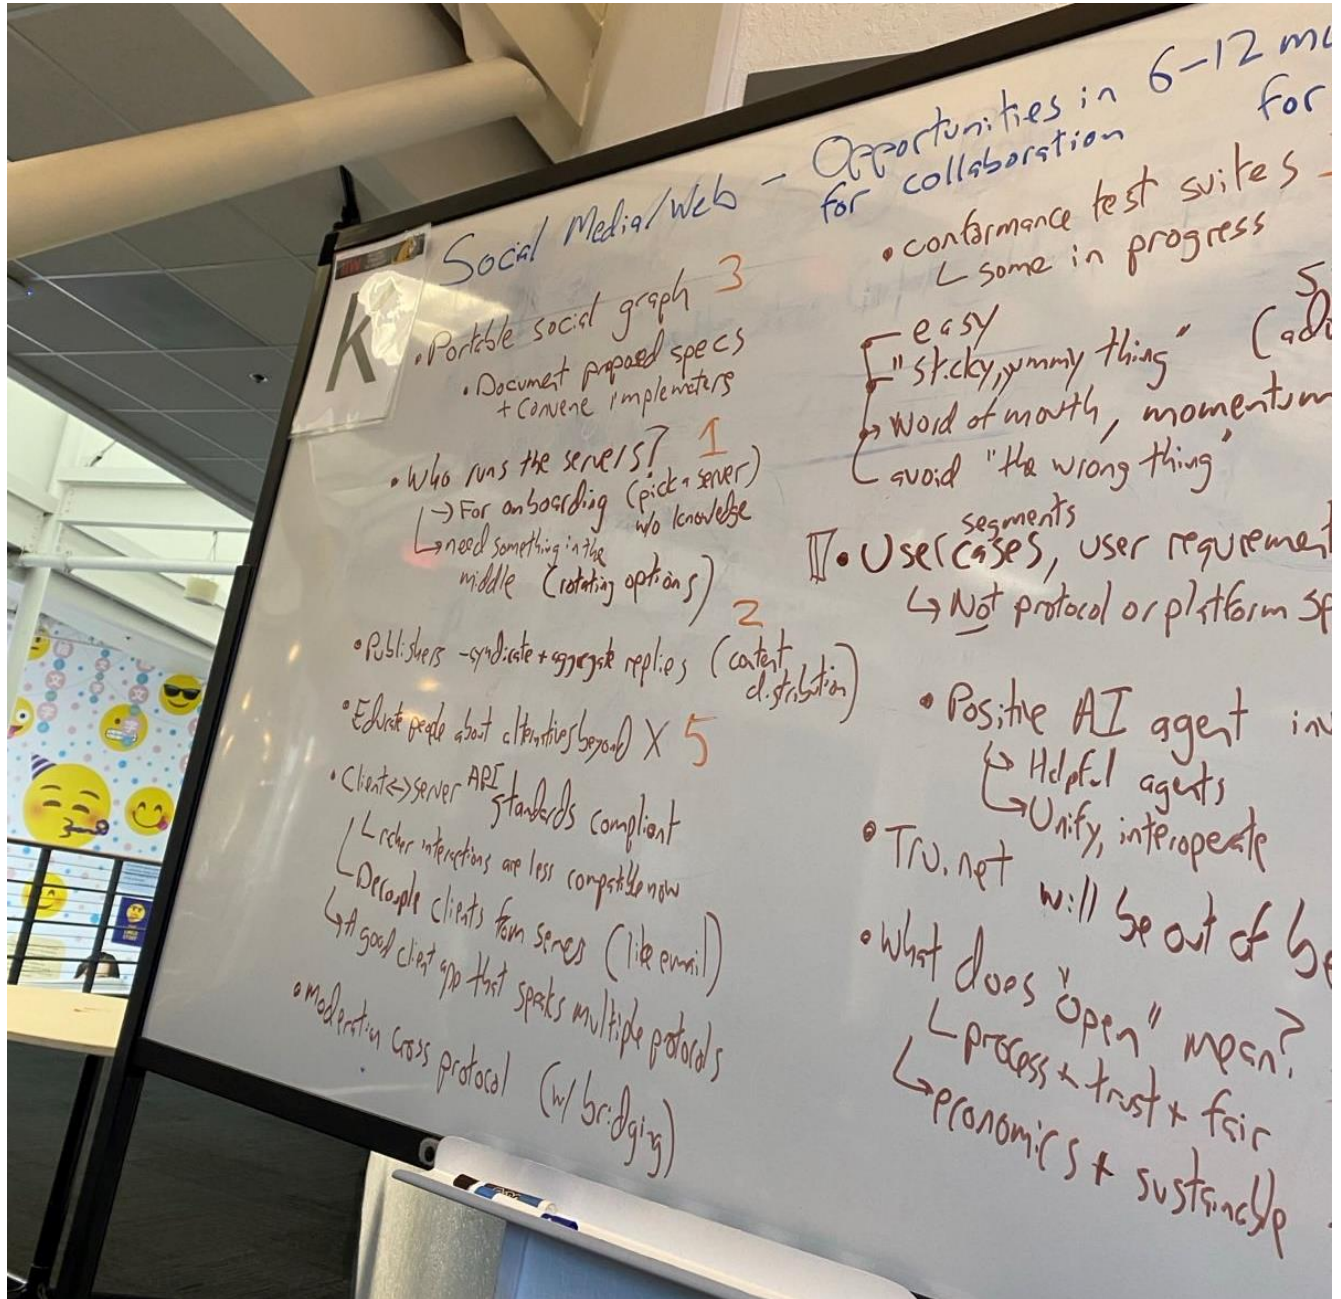 Social Media/Web - Opportunities in 6-12 mo
for collaboration for
K
• Portable social graph 3
• Document proposed specs
+ Convene implementers
• Who runs the servers? 1
→ For onboarding (pick a server)
w/o knowledge
→ need something in the
middle (rotating options)
2
• Publishers - syndicate + aggregate replies (content
distribution)
• Educate people about alternatives beyond X 5
• Client <-> server API
standards compliant
richer interactions are less compatible now
Decouple clients from servers (like email)
↳ A good client app that speaks multiple protocols
• Moderation cross protocol (w/ bridging)
• conformance test suites -
└ some in progress
easy
"sticky, yummy thing"
→ Word of mouth, momentum
avoid "the wrong thing"
segments
• User cases, user requirement
↳ Not protocol or platform sp
• Positive AI agent
→ Helpful agents
→ Unify, interoperate
• Tru.net will be out of be
• What does "open" mean?
└ process + trust + fair
→ economics + sustainable